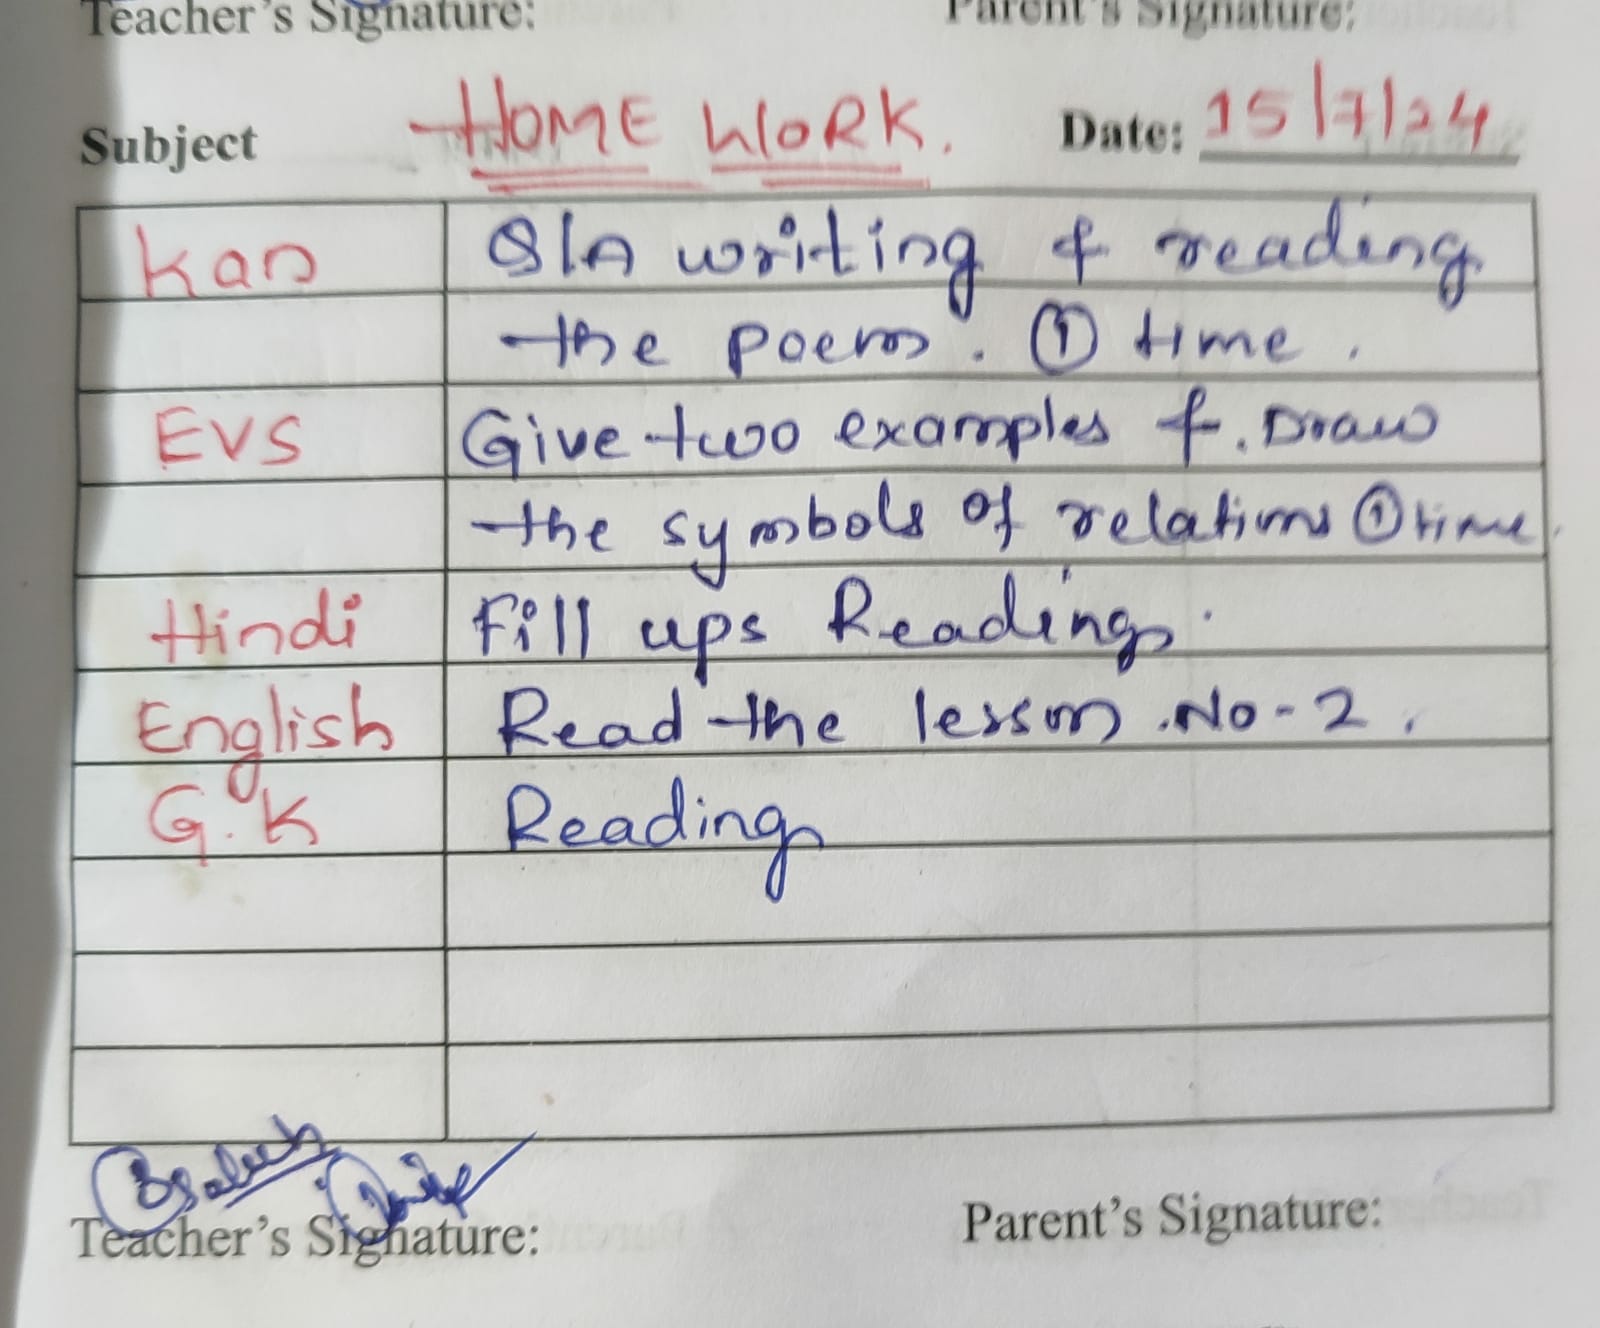 Teacher's Signature: Parent's Signature:
Subject HOME WORK. Date: 15/7/24
Kan Q/A writing & reading
the poem. ① time.
EVS Give two examples &. Draw
the symbols of relations ① time.
Hindi Fill ups Reading.
English Read the lesson .No-2.
G.K Reading
Teacher's Signature: Parent's Signature: